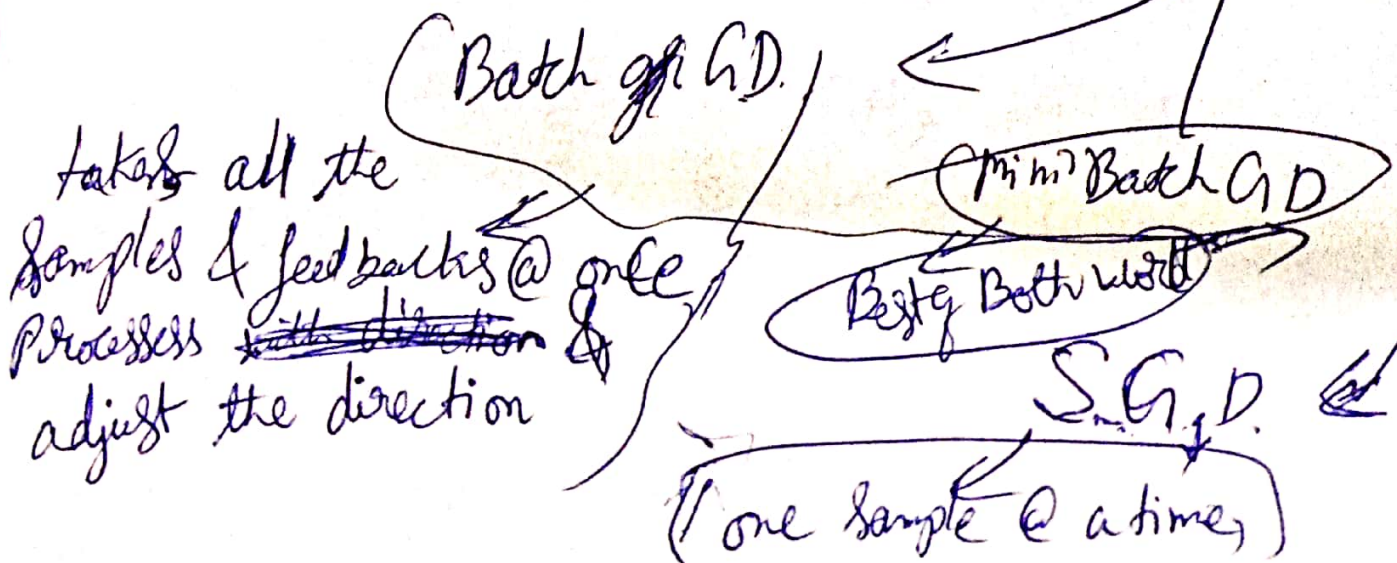 Batch GD.
takes all the
Samples & feedbacks @ once
Processess &
adjust the direction
Mini Batch GD
Best of Both world
S.G.D.
one sample @ a time,